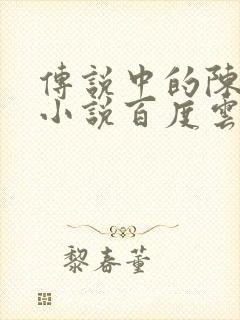 傳說中的陳
小說百度雲
黎春董